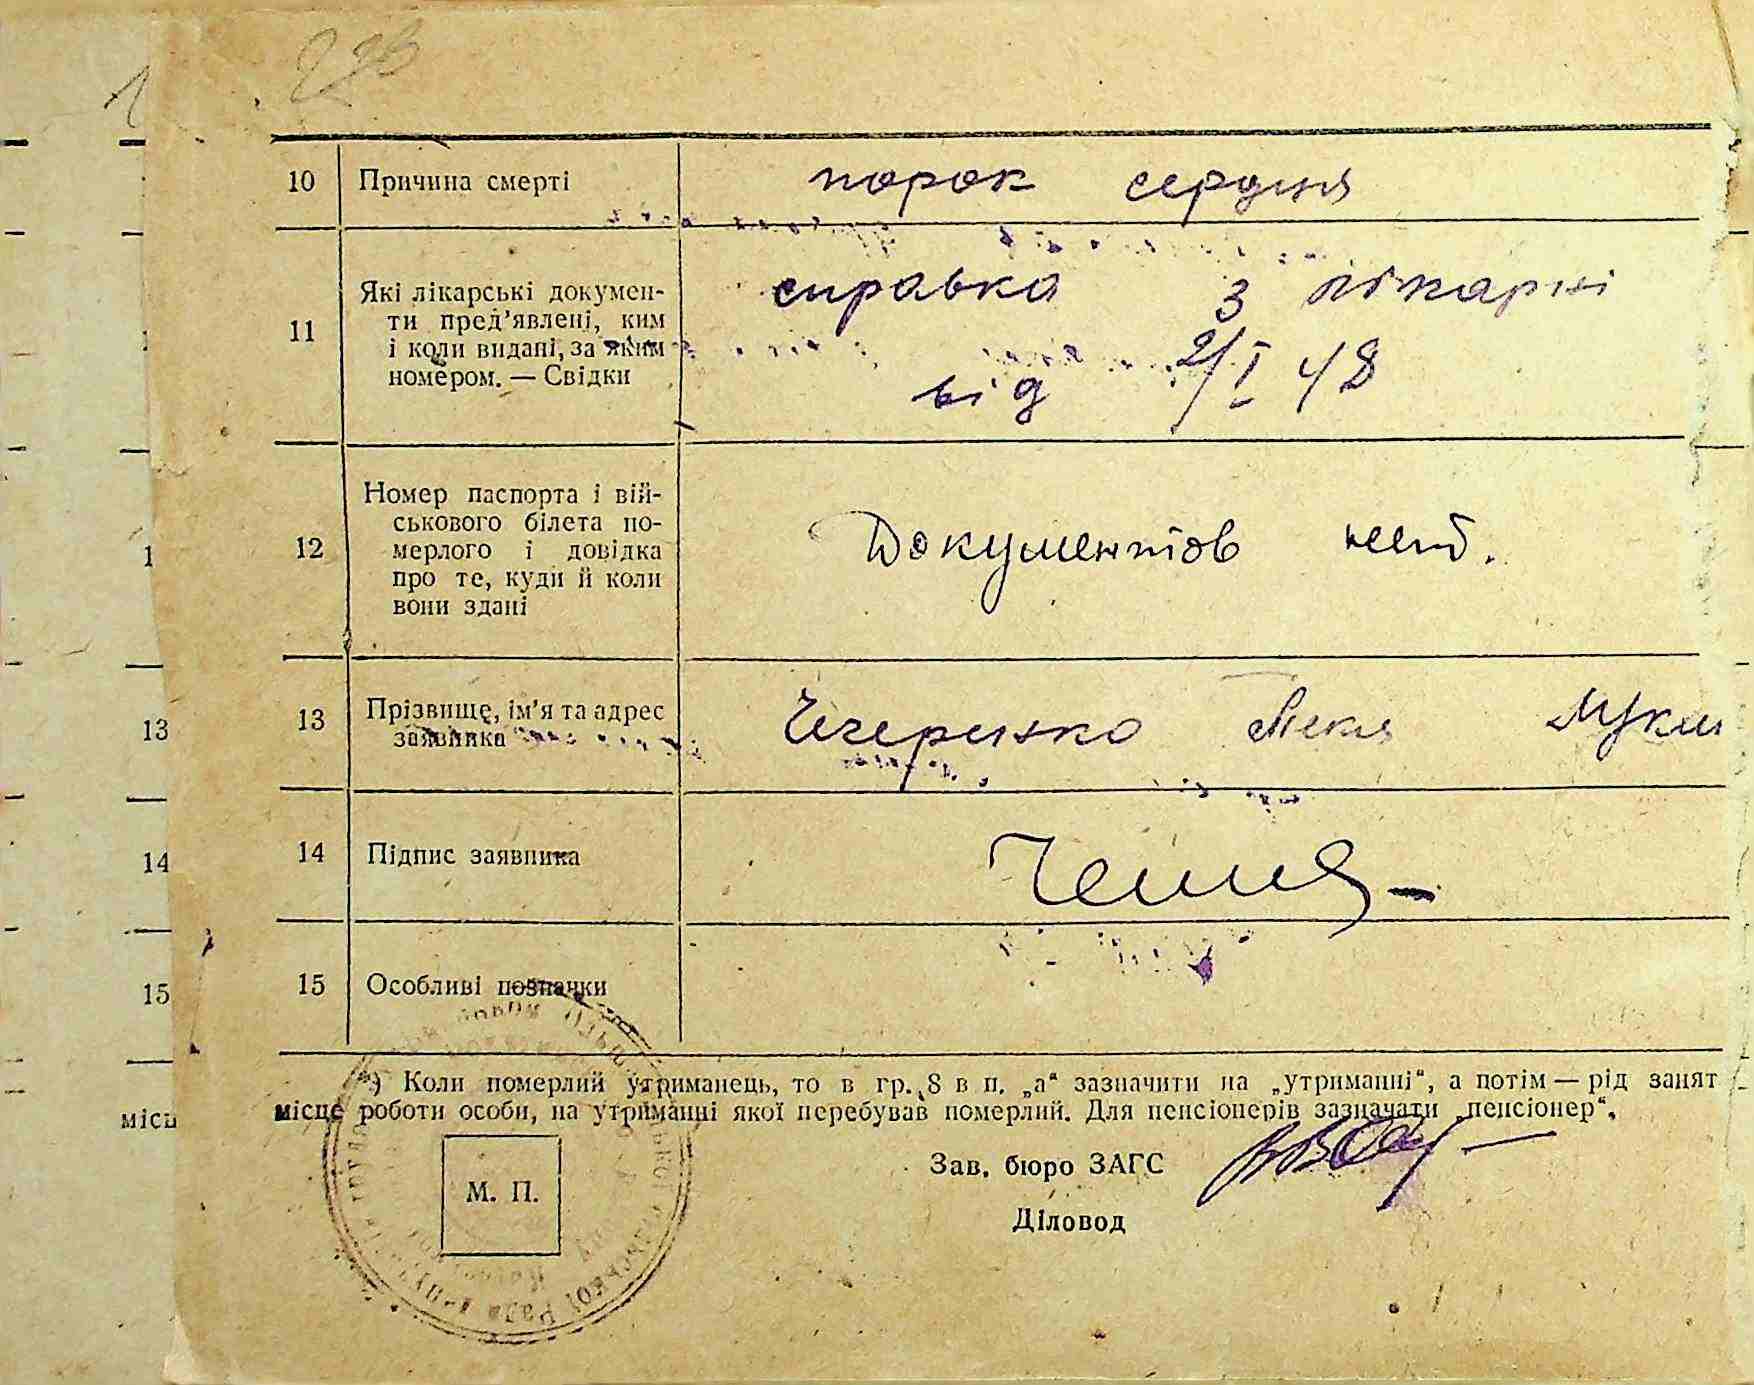 10 Причина смерті порок сердця
11 Які лікарські докумен-
ти пред'явлені, ким
і коли видані, за яким
номером. — Свідки
справка з лікарні
від 2/I 48
12 Номер паспорта і вій-
ськового білета по-
мерлого і довідка
про те, куди й коли
вони здані
Документов нет.
13 Прізвище, ім'я та адрес
заявника
14 Підпис заявника
15 Особливі позначки
*) Коли померлий утриманець, то в гр. 8 в п. „а“ зазначити на „утриманні“, а потім — рід занят
місце роботи особи, на утриманні якої перебував померлий. Для пенсіонерів зазначати „пенсіонер“.
Зав. бюро ЗАГС
М. П.
Діловод
13
14
15